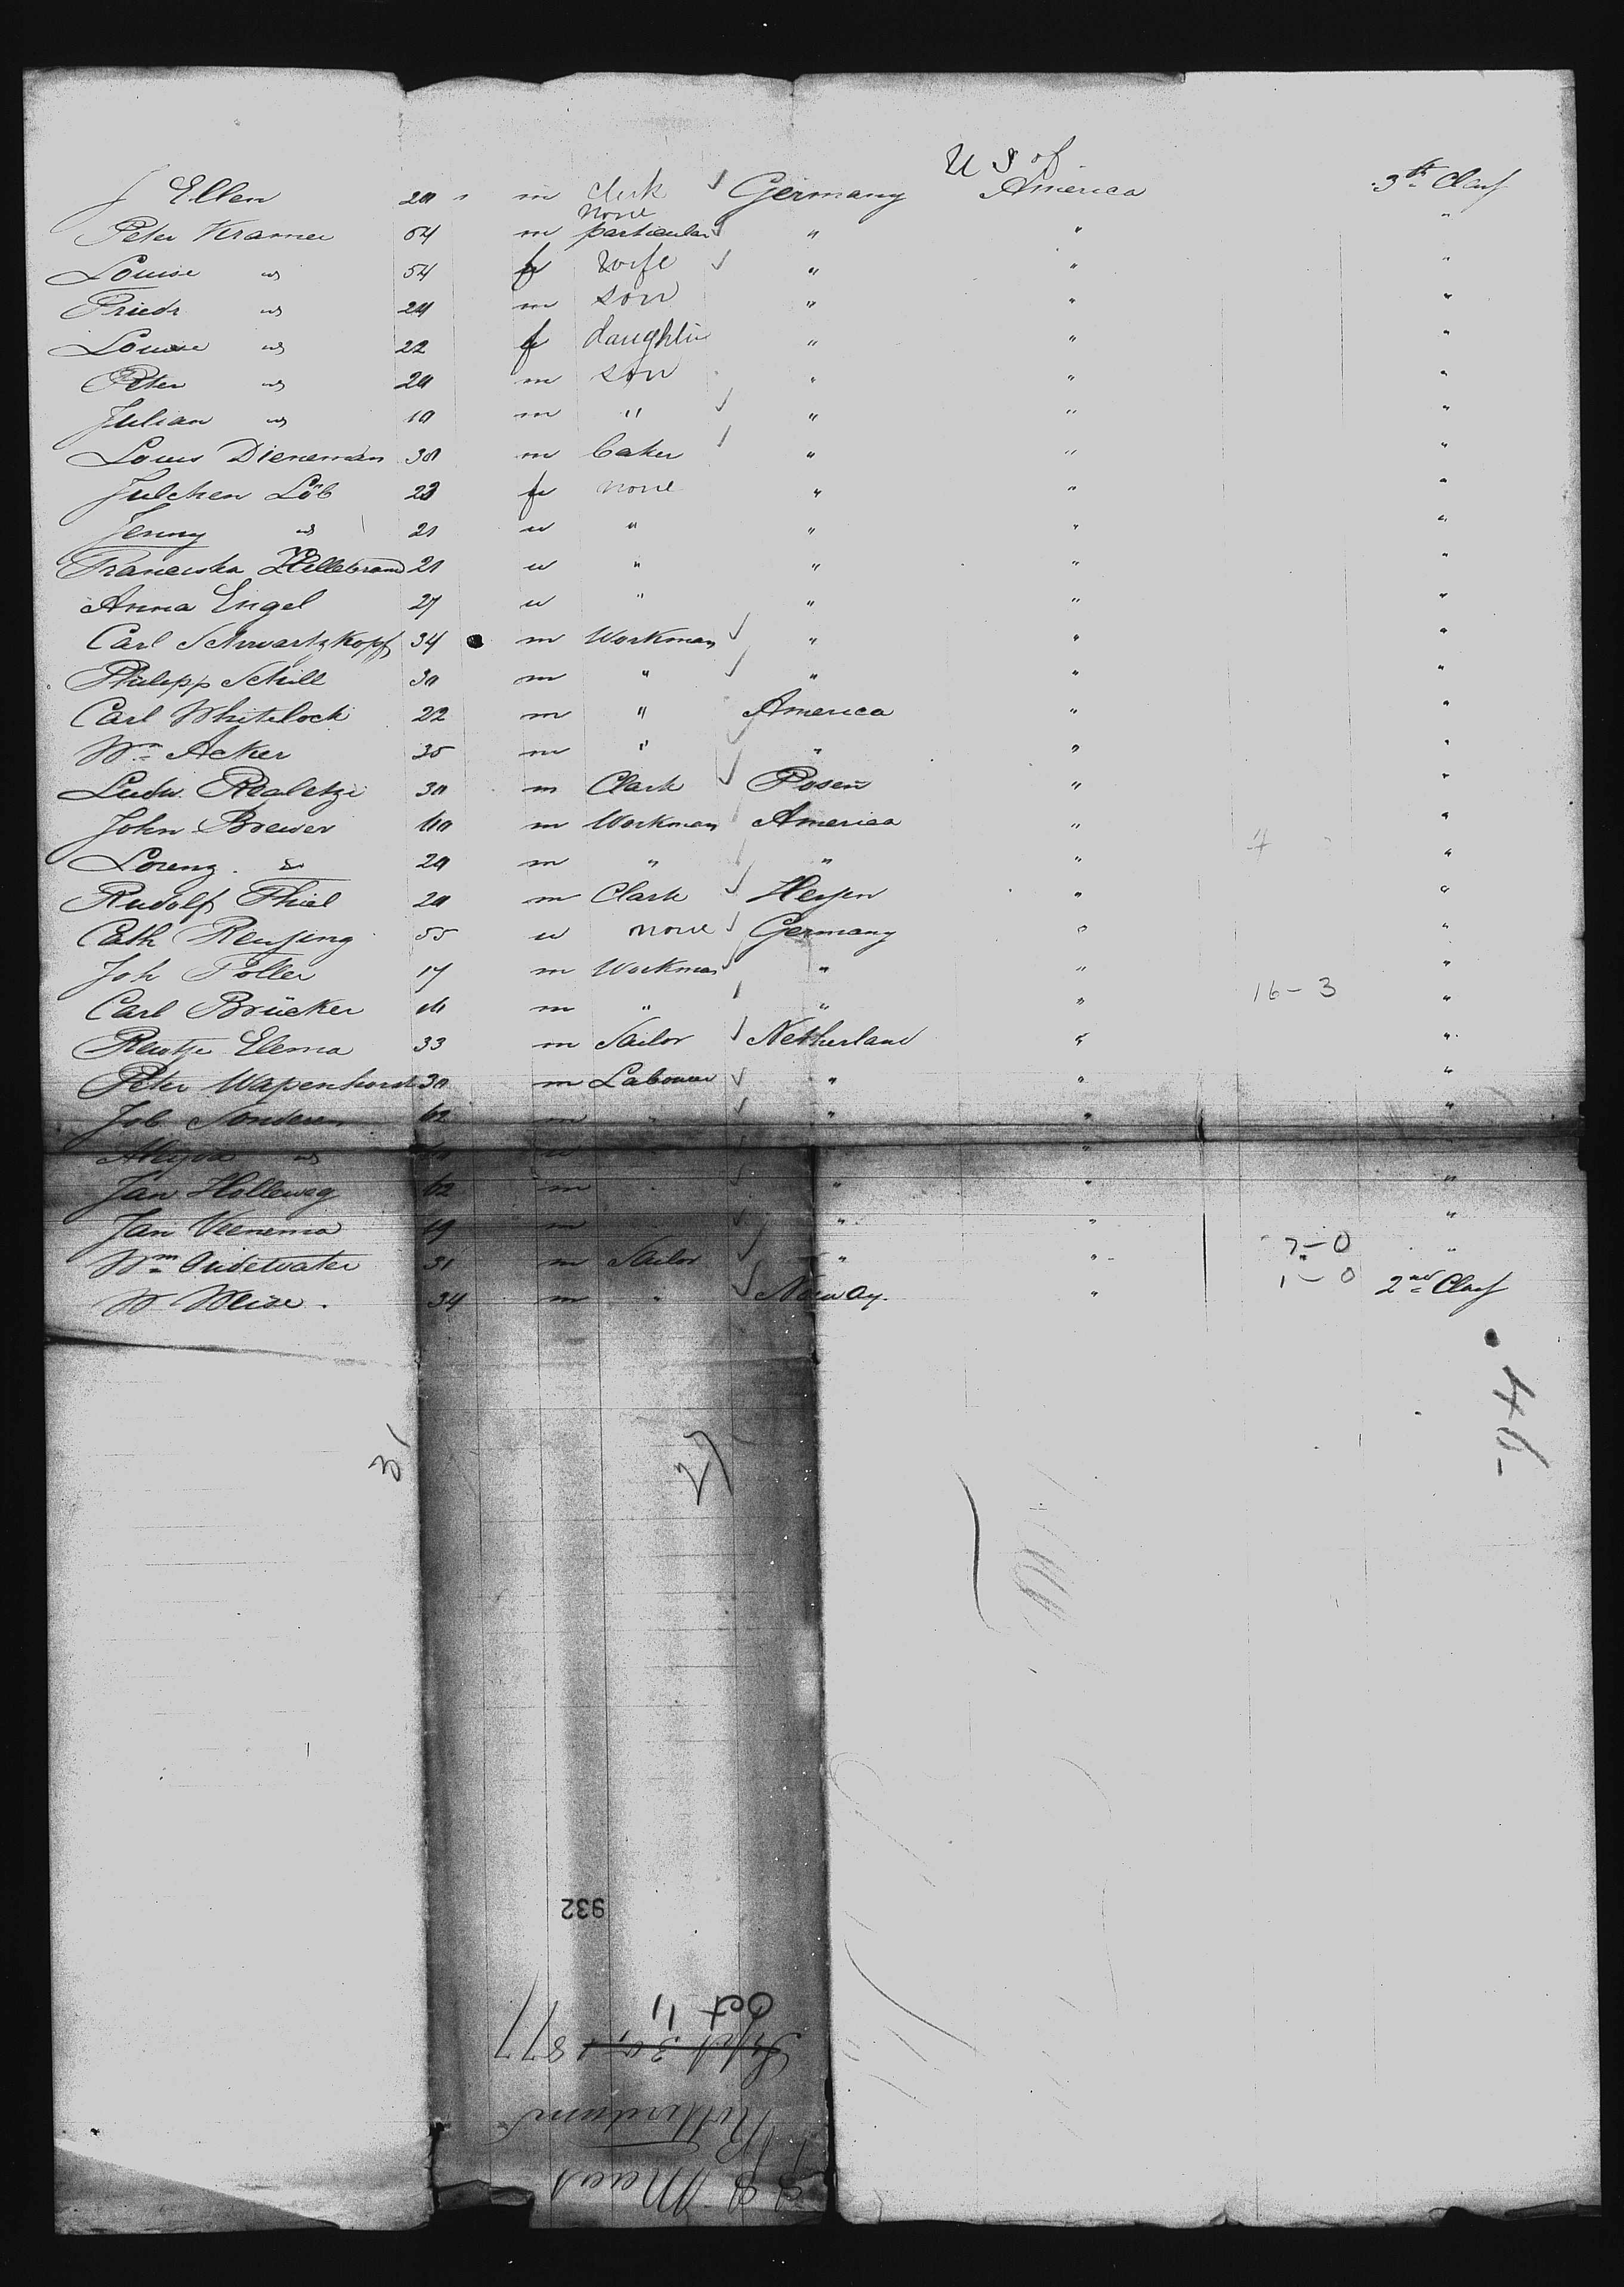 U S of
J Ellen 20 m clerk Germany America 3th Class
none
Peter Kramer 54 m particular " " "
Louise " 54 f wife " " "
Friedr " 24 m son " " "
Louise " 22 f daughter " " "
Peter " 20 m son " " "
Julian " 10 m " " " "
Louis Dieneman 30 m baker " " "
Julchen Löb 23 f none " " "
Jenny " 21 w " " " "
Franciska Hillebrand 21 w " " " "
Anna Engel 27 w " " " "
Carl Schwartzkopf 34 m Workman " " "
Philipp Schill 30 m " " " "
Carl Whitelock 22 m " America " "
Wm Acker 35 m " " " "
Ludw. 30 m Clark Posen " "
John Brewer 40 m Workman America " "
Lorenz " 20 m " " " "
Rudolf Thiel 20 m Clark Hessen " "
Cath Rensing 55 w none Germany " "
Joh Toller 17 m Workman " " "
Carl Brücker 16 m " " " 16-3 "
Elema 33 m Sailor Netherland " "
Peter Wapenhorst 30 m Labourer " " "
Job Sonderen 62 m " " " "
" w " "
Jan Holleweg 62 m " " " "
Jan Veenema 19 m " " " "
Wm Oudewater 31 m Sailor " " 7-0 "
W Weise 34 m " Norway " 1-0 2nd Class
94
31
27
932
Oct 11
Sept 30, 1877
Rotterdam
S.S. Maas